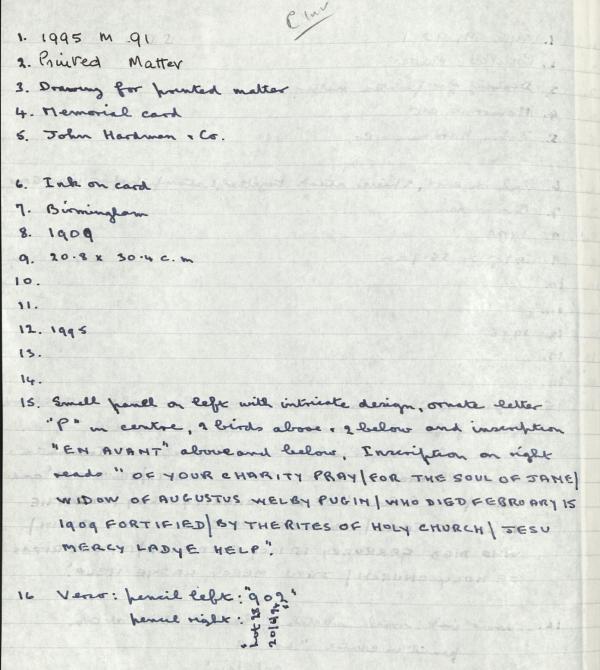 C Inv
1. 1995 M 912
2. Printed Matter
3. Drawing for printed matter
4. Memorial card
5. John Hardman & Co.
6. Ink on card
7. Birmingham
8. 1909
9. 20.8 x 30.4 c.m
10.
11.
12. 1995
13.
14.
15. Small panel on left with intricate design, ornate letter
"P" in centre, 2 birds above & 2 below and inscription
"EN AVANT" above and below. Inscription on right
reads "OF YOUR CHARITY PRAY|FOR THE SOUL OF JANE|
WIDOW OF AUGUSTUS WELBY PUGIN|WHO DIED FEBRUARY 15
1909 FORTIFIED|BY THE RITES OF HOLY CHURCH|JESU
MERCY LADYE HELP".
16 Verso: pencil left: "902"
pencil right: